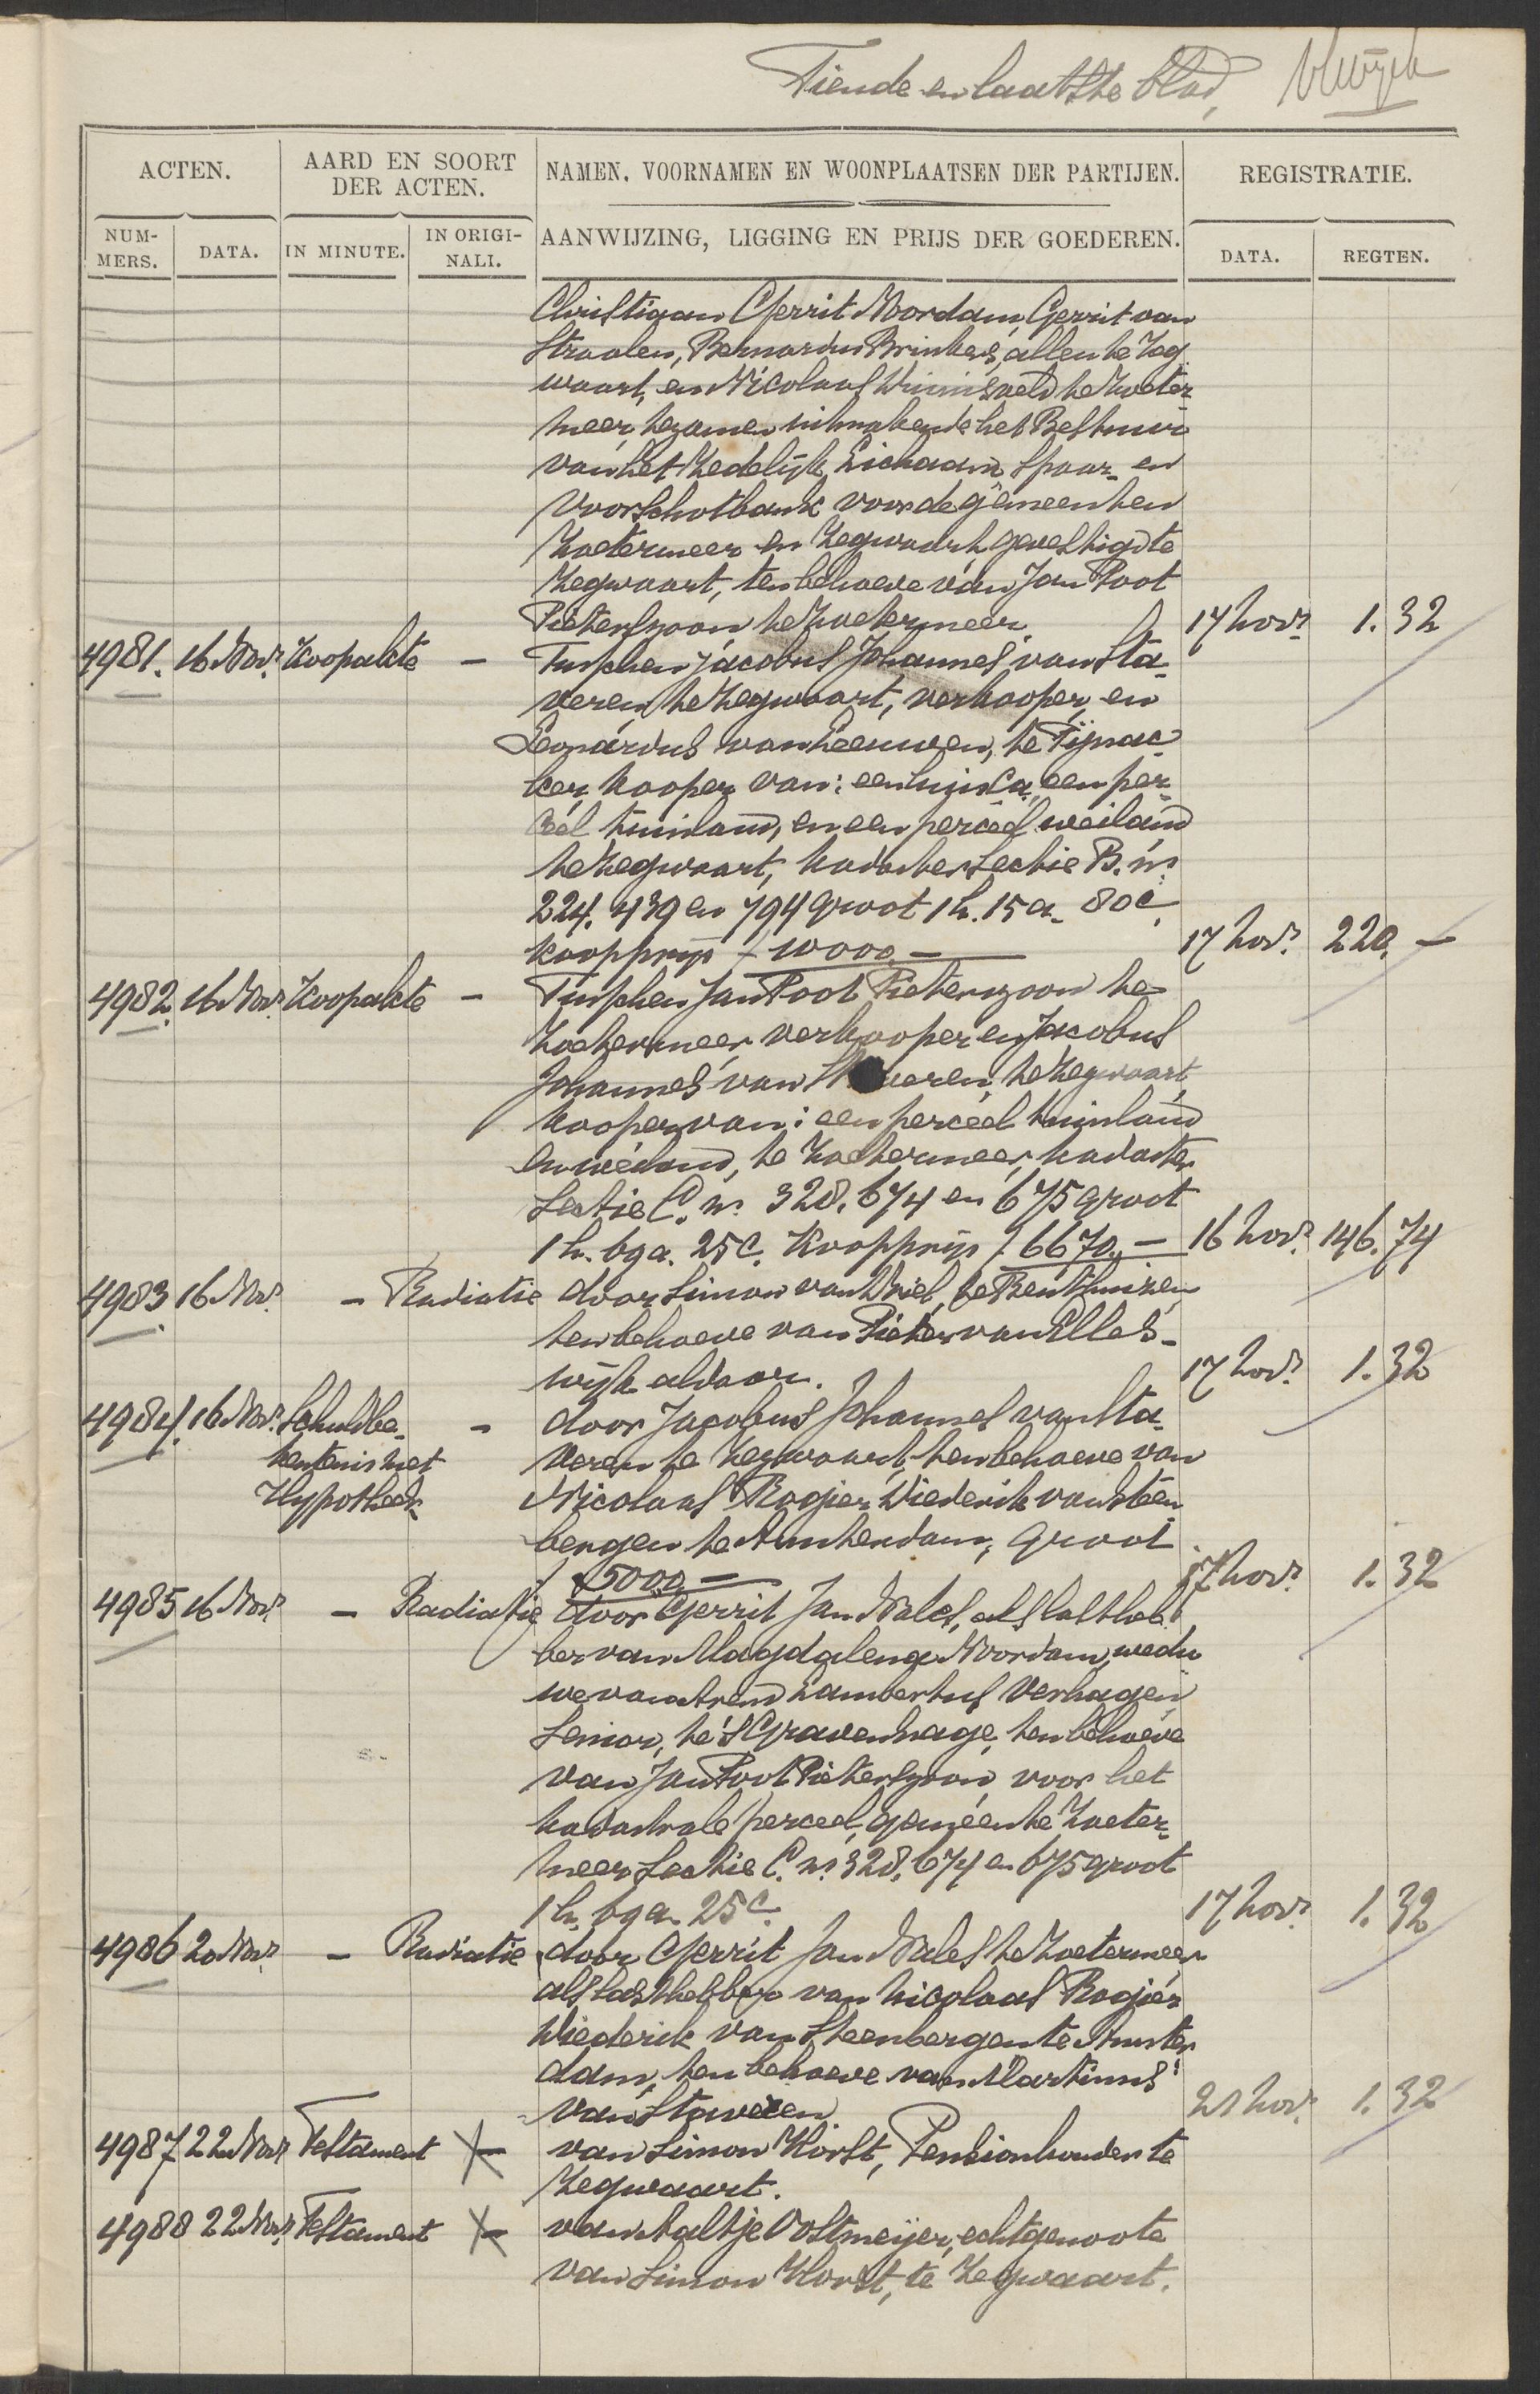 Tiende en laatste blad,
ACTEN.
AARD EN SOORT
DER ACTEN.
NAMEN, VOORNAMEN EN WOONPLAATSEN DER PARTIJEN.
REGISTRATIE.
NUM-
MERS.
DATA.
IN MINUTE.
IN ORIGI-
NALI.
AANWIJZING, LIGGING EN PRIJS DER GOEDEREN.
DATA.
REGTEN.
Christiaan Gerrit Noordam, Gerrit van
Straalen, Bernardus Brinkers, allen te Zeg
waart, en Nicolaas Winnisveld te Zoeter
meer, tezamen uitmakende het Bestuur
van het Zedelijk Lichaam Spaar- en
Voorschotbank voor de gemeenten
Zoetermeer en Zegwaart gevestigd te
Zegwaart, ten behoeve van Jan Poot
Pieterszoon te Zoetermeer 17 Nov. 1.32
4981. 16 Nov. Koopakte - Tusschen Jacobus Johannes van Sta-
veren te Zegwaart, verkooper, en
Leonardus van Leeuwen, te Pijnac-
ker, kooper van: een huis Ca, een per-
ceel tuinland, en een perceel weiland
te Zegwaart, kadaster Sectie B. nrs
224, 439 en 794 groot 1 h. 15 a. 80 c.
koopprijs f 10000.- 17 Nov. 220.-
4982. 16 Nov. Koopakte - Tusschen Jan Poot Pieterszoon te
Zoetermeer, verkooper en Jacobus
Johannes van St veren, te Zegwaart,
kooper van: een perceel tuinland
en weiland, te Zoetermeer, kadaster
Sectie C. nrs 328, 674 en 675 groot
1 h. 69 a. 25 c. Koopprijs f 6670.- 16 Nov. 146.74
4983 16 Nov. - Radiatie door Simon van Vliet, te Benthuizen,
ten behoeve van Pieter van Elles-
wijk aldaar. 17 Nov. 1.32
4984. 16 Nov. Schuldbe- - door Jacobus Johannes van Sta-
kentenis met veren te Zegwaart, ten behoeve van
Hypotheek Nicolaas Rogier Wiederik van Steen
bergen te Amsterdam, groot
f 5000.- 17 Nov. 1.32
4985 16 Nov. - Radiatie door Gerrit Jan Wales, als lastheb
ber van Magdalena Noordam, wedu
we van Arend Lambertus Verhagen
Senior, te 's Gravenhage, ten behoeve
van Jan Poot Pieterszoon, voor het
kadastrale perceel, gemeente Zoeter-
meer Sectie C. nrs 328, 674 en 675 groot
1 h. 69 a. 25 c. 17 Nov. 1.32
4986 20 Nov. - Radiatie door Gerrit Jan Wales te Zoetermeer
als lasthebber van Nicolaas Rogier
Wiederik van Steenbergen te Amster
dam, ten behoeve van Martinus
van Staveren. 21 Nov. 1.32
4987 22 Nov. Testament - van Simon Horst, Pensionhouder te
Zegwaart.
4988 22 Nov. Testament - van Aaltje Oostmeijer, echtgenoote
van Simon Horst, te Zegwaart.